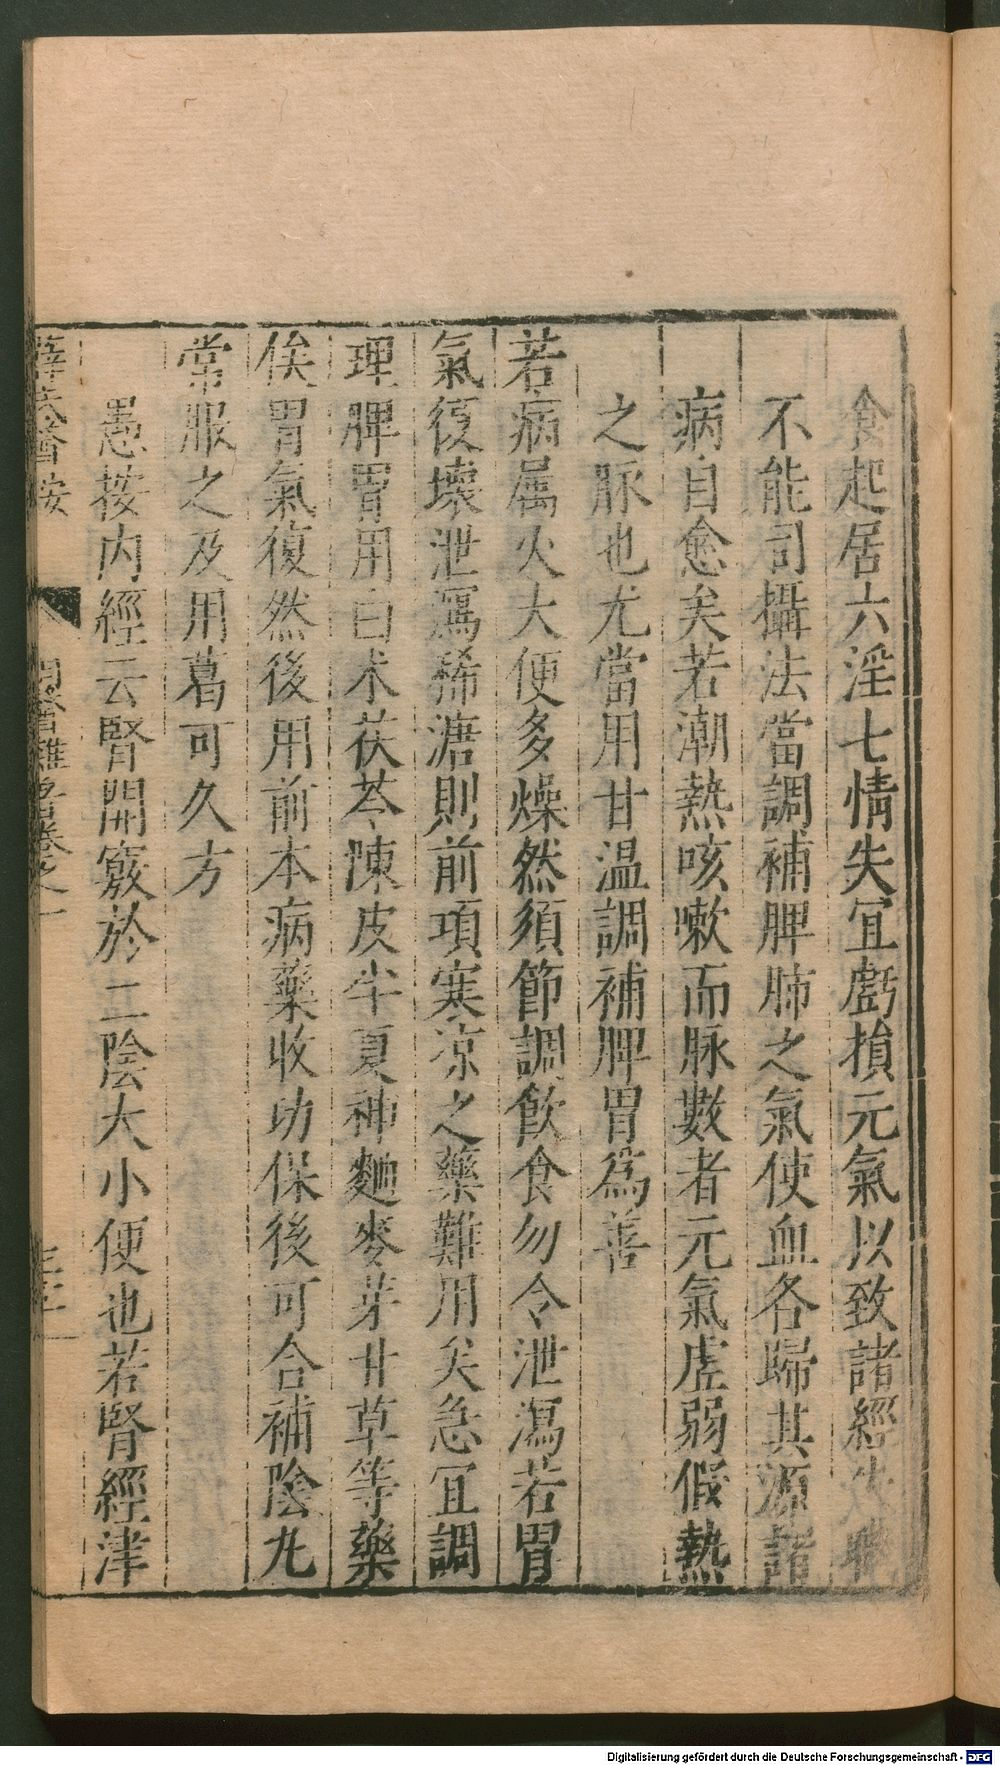 食起居六淫七情失宜虧損元氣以致諸經失職
不能司攝法當調補脾肺之氣使血各歸其源諸
病自愈矣若潮熱咳嗽而脉數者元氣虛弱假熱
之脉也尤當用甘温調補脾胃爲善
若病属火大便多燥然須節調飲食勿令泄瀉若胃
氣復壊泄瀉稀溏則前項寒凉之藥難用矣急宜調
理脾胃用白术茯苓陳皮半夏神麯麥芽甘草等藥
俟胃氣復然後用前本病藥收功保後可合補陰丸
常服之及用葛可久方
愚按内經云腎開竅於二陰大小便也若腎經津
薛氏醫按
明醫雜著卷之一
Digitalisierung gefördert durch die Deutsche Forschungsgemeinschaft - DFG